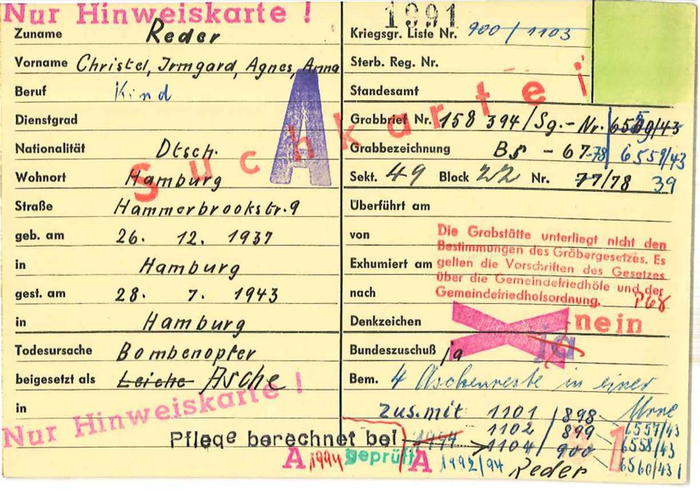 Nur Hinweiskarte !
1991
Zuname Reder
Vorname Christel, Irmgard, Agnes, Anna
Beruf Kind
Dienstgrad
Nationalität Dtsch.
Wohnort Hamburg
Straße Hammerbrookstr. 9
geb. am 26. 12. 1937
in Hamburg
gest. am 28. 7. 1943
in Hamburg
Todesursache Bombenopfer
beigesetzt als Leiche Asche
in
Nur Hinweiskarte !
Suchkartei
A
Kriegsgr. Liste Nr. 900/1103
Sterb. Reg. Nr.
Standesamt
Grabbrief Nr. 158 394/Sg.-Nr.
Grabbezeichnung BS - 67-78 6559/43
Sekt. 49 Block 22 Nr. 77/78 39
Überführt am
von
Exhumiert am
nach
Die Grabstätte unterliegt nicht den
Bestimmungen des Gräbergesetzes. Es
gelten die Vorschriften des Gesetzes
über die Gemeindefriedhöfe und der
Gemeindefriedhofsordnung.
Denkzeichen nein
ja
Bundeszuschuß ja
Bem. 4 Aschenreste in einer
Urne
zus. mit 1101 / 898 6557/43
1102 / 899 6558/43
1104 / 900 6560/43
Reder
Pflege berechnet bei
A 1994 geprüft A 1992/94
1